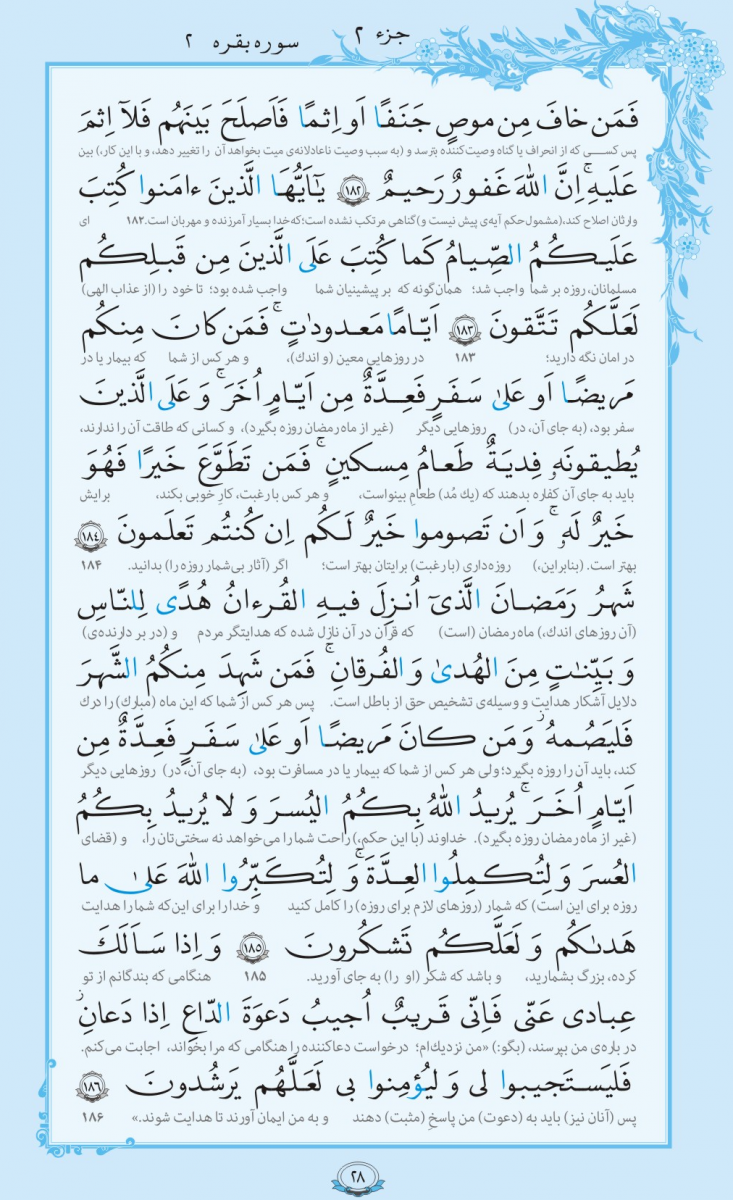 جزء ۲
سوره بقره ۲
فَمَن خافَ مِن موصٍ جَنَفًا اَو اِثمًا فَاَصلَحَ بَينَهُم فَلآ اِثمَ
پس کسی که از انحراف یا گناه وصیت‌کننده بترسد و (به سبب وصیت ناعادلانه‌ی میت بخواهد آن را تغییر دهد، و با این کار،) بین
عَلَيهِ ۚ اِنَّ اللّٰهَ غَفورٌ رَحيمٌ ﴿۱۸۲﴾ يٰٓاَيُّهَا الَّذينَ ءامَنوا كُتِبَ
وارثان اصلاح کند،(مشمول حکم آیه‌ی پیش نیست و) گناهی مرتکب نشده است؛که خدا بسیار آمرزنده و مهربان است. ۱۸۲ ای
عَلَيكُمُ الصِّيامُ كَما كُتِبَ عَلَى الَّذينَ مِن قَبلِكُم
مسلمانان، روزه بر شما واجب شد؛ همان‌گونه که بر پیشینیان شما واجب شده بود؛ تا خود را (از عذاب الهی)
لَعَلَّكُم تَتَّقونَ ﴿۱۸۳﴾ اَيّامًا مَعدودٰتٍ ۚ فَمَن كانَ مِنكُم
در امان نگه دارید؛ ۱۸۳ در روزهایی معین (و اندک)، و هر کس از شما که بیمار یا در
مَريضًا اَو عَلىٰ سَفَرٍ فَعِدَّةٌ مِن اَيّامٍ اُخَرَ ۚ وَ عَلَى الَّذينَ
سفر بود، (به جای آن، در) روزهایی دیگر (غیر از ماه رمضان روزه بگیرد)، و کسانی که طاقت آن را ندارند،
يُطيقونَهٗ فِديَةٌ طَعامُ مِسكينٍ ۚ فَمَن تَطَوَّعَ خَيرًا فَهُوَ
باید به جای آن کفاره بدهند که (یک مُد) طعامِ بینواست، و هر کس با رغبت، کارِ خوبی بکند، برایش
خَيرٌ لَهٗ ۚ وَ اَن تَصوموا خَيرٌ لَكُم اِن كُنتُم تَعلَمونَ ﴿۱۸۴﴾
بهتر است. (بنابراین،) روزه‌داری (با رغبت) برایتان بهتر است؛ اگر (آثار بی‌شمار روزه را) بدانید. ۱۸۴
شَهرُ رَمَضانَ الَّذىٓ اُنزِلَ فيهِ القُرءانُ هُدًى لِلنّاسِ
(آن روزهای اندک،) ماه رمضان (است) که قرآن در آن نازل شده که هدایتگر مردم و (در بر دارنده‌ی)
وَ بَيِّنٰتٍ مِنَ الهُدىٰ وَ الفُرقانِ ۚ فَمَن شَهِدَ مِنكُمُ الشَّهرَ
دلایل آشکار هدایت و وسیله‌ی تشخیص حق از باطل است. پس هر کس از شما که این ماه (مبارک) را درک
فَليَصُمهُ ۖ وَ مَن كانَ مَريضًا اَو عَلىٰ سَفَرٍ فَعِدَّةٌ مِن
کند، باید آن را روزه بگیرد؛ ولی هر کس از شما که بیمار یا در مسافرت بود، (به جای آن، در) روزهایی دیگر
اَيّامٍ اُخَرَ ۚ يُريدُ اللّٰهُ بِكُمُ اليُسرَ وَ لا يُريدُ بِكُمُ
(غیر از ماه رمضان روزه بگیرد). خداوند (با این حکم،) راحت شما را می‌خواهد نه سختی‌تان را، و (قضای
العُسرَ وَ لِتُكمِلُوا العِدَّةَ ۚ وَ لِتُكَبِّرُوا اللّٰهَ عَلىٰ ما
روزه برای این است) که شمار (روزهای لازم برای روزه) را کامل کنید و خدا را برای این‌که شما را هدایت
هَدىٰكُم وَ لَعَلَّكُم تَشكُرونَ ﴿۱۸۵﴾ وَ اِذا سَاَلَكَ
کرده، بزرگ بشمارید، و باشد که شکر (او را) به جای آورید. ۱۸۵ هنگامی که بندگانم از تو
عِبادى عَنّى فَاِنّى قَريبٌ اُجيبُ دَعوَةَ الدّاعِ اِذا دَعانِ ۖ
در باره‌ی من بپرسند، (بگو:) «من نزدیک‌ام؛ درخواست دعاکننده را هنگامی که مرا بخواند، اجابت می‌کنم.
فَليَستَجيبوا لى وَ ليُؤمِنوا بى لَعَلَّهُم يَرشُدونَ ﴿۱۸۶﴾
پس (آنان نیز) باید به (دعوت) من پاسخِ (مثبت) دهند و به من ایمان آورند تا هدایت شوند.» ۱۸۶
۲۸